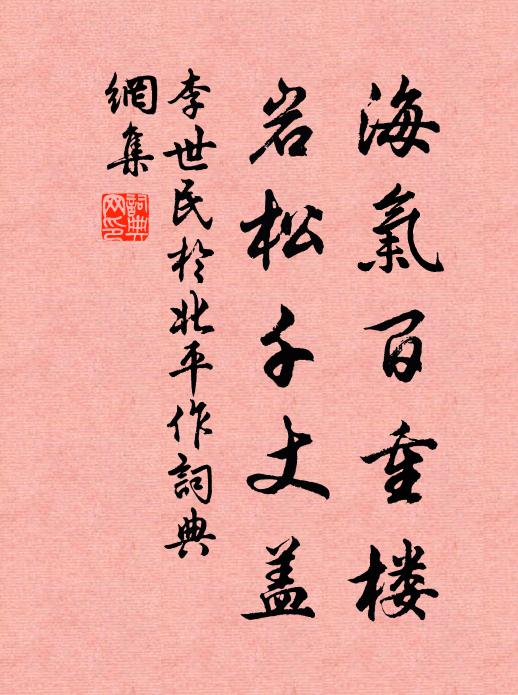 海氣百重楼
岩松千丈盖
李世民於北平作詞典
網集
詞典
网印